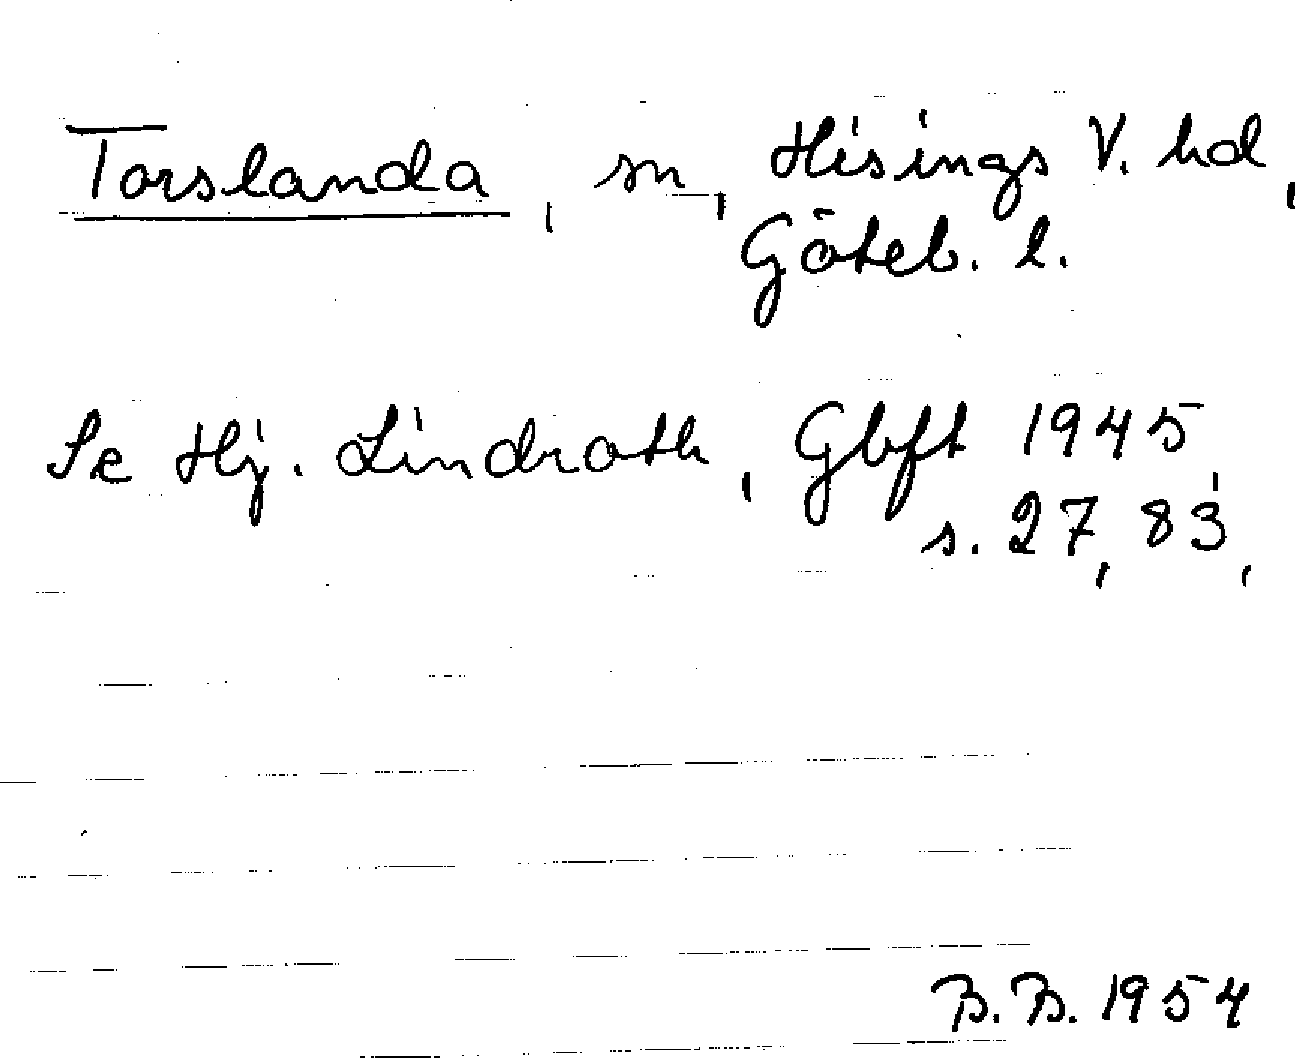 Torslanda, sn, Hisings V. hd,
Göteb. l.
Se Hj. Lindroth, Gbft 1945,
s. 27, 83,
B. B. 1954